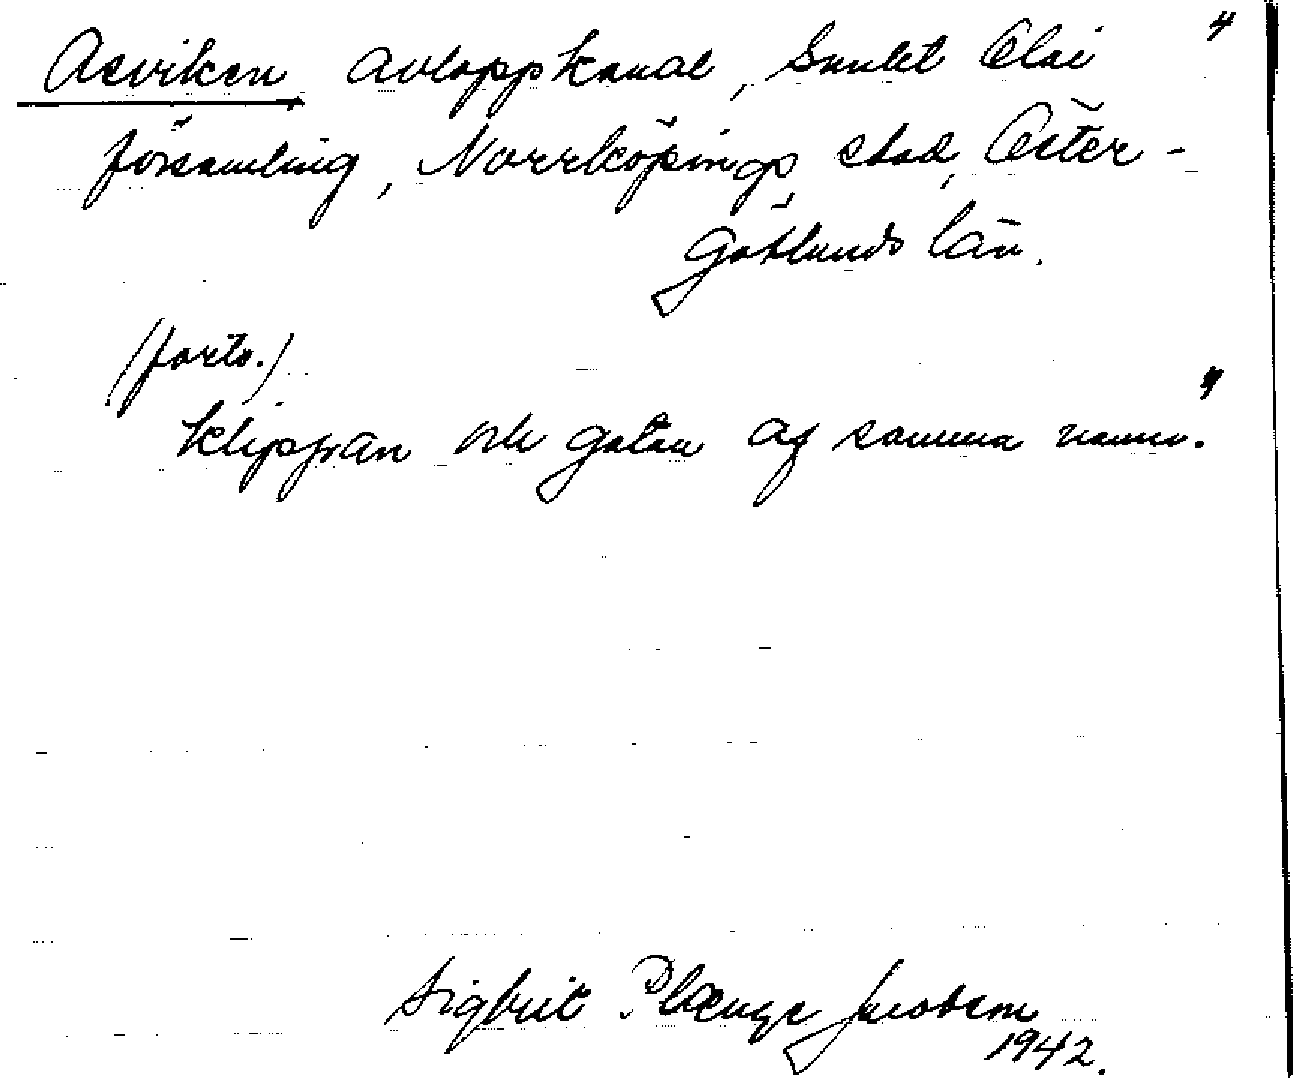 Asviken avloppkanal, Sankt Olai 4
församling, Norrköpings stad, Öster-
götlands län.
(forts.)
klippan och gatan af samma namn."
Sigbrit Plænge Jacobson
1942.